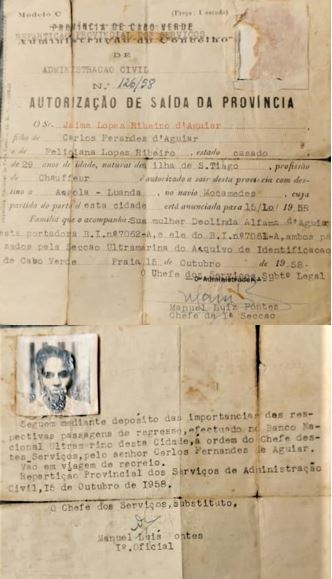 Modelo C (Preço: 1 escudo)
PROVÍNCIA DE CABO VERDE
REPARTIÇÃO PROVINCIAL DOS SERVIÇOS
Administração do Concelho
DE
ADMINISTRACAO CIVIL
N.º 126/58
AUTORIZAÇÃO DE SAÍDA DA PROVÍNCIA
O Sr. Jaime Lopes Ribeiro d'Aguiar
filho de Carlos Ferandes d'Aguiar
e de Feliciana Lopes Ribeiro , estado casado
de 29 anos de idade, natural da ilha de S.Tiago , profissão
Chauffeur é autorizado a sair desta província com des-
tino a Angola - Luanda, no navio Mocamedes , cuja
partida do porto d esta cidade está anunciada para 15/Io/ 19 58
Família que o acompanha: Sua mulher Deolinda Alfama d'Aguiar
este portadora B.I.nº7062-A, e ela do B.I.nº7061-A, ambos pa
ssados pela Seccao Ultramarina do Arquivo de Identificacao
de Cabo Verde Praia, 15 de Outubro de 19 58.
O Chefe dos Serviços, Subtº Legal
O Administrador,
Manuel Luiz Pontes
Chefe da 1ª Seccao
Seguem mediante depósito das importancias das res-
pectivas passagens de regresso, efectuado no Banco Na-
cional Ultramarino desta Cidade, à ordem do Chefe des-
tes Serviços, pelo senhor Carlos Fernandes de Aguiar.
Vão em viagem de recreio.
Repartição Provincial dos Serviços de Administração
Civil, 15 de Outubro de 1958.
O Chefe dos Serviços, substituto,
Manuel Luis Pontes
Iº. Oficial